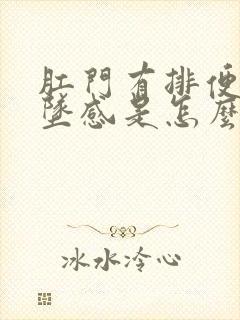 肛門有排便
墜感是怎麼
冰水冷心